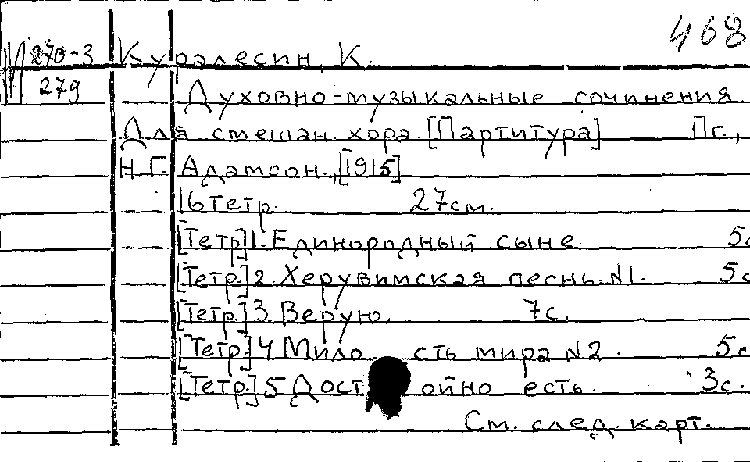 468
270-3 Куралесин, К.
279
Духовно-музыкальные сочинения
Для смешан. хора. [Партитура] Пг.,
Н.Г. Адамсон, [1915]
16 тетр. 27см.
[Тетр.] 1. Единородный сыне 5с
[Тетр.] 2. Херувимская песнь. N1. 5с
[Тетр.] 3. Верую. 7с.
[Тетр.] 4 Мило сть мира N2. 5с
[Тетр.] 5 Дост ойно есть. 3с.
См. след. карт.